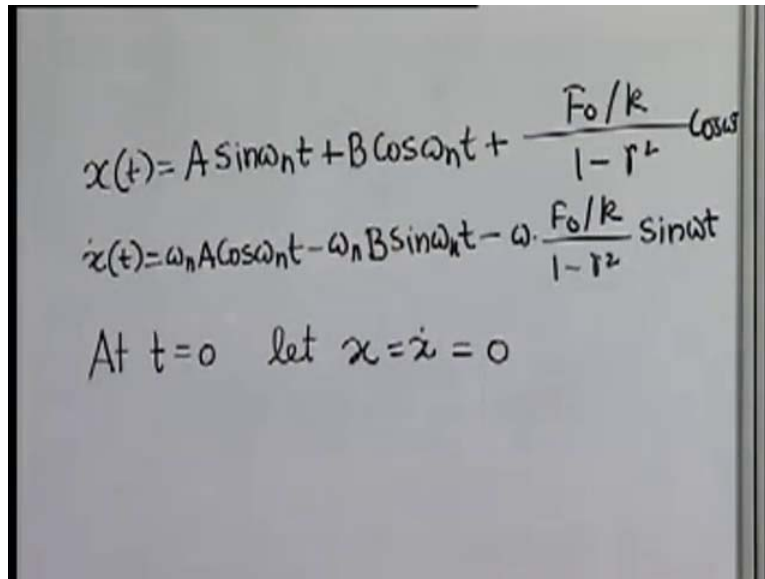 x(t)= A Sinωnt + B Cosωnt + F₀/k / 1 - r² Cosω
ẋ(t)= ωₙA Cosωnt - ωₙ B Sinωnt - ω. F₀/k / 1 - r² Sinωt
At t=0 let x = ẋ = 0